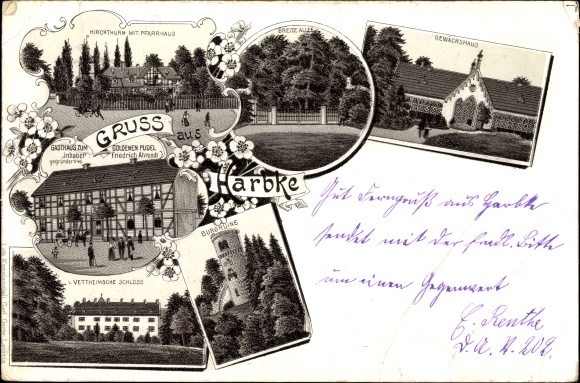 KIRCHTHURM MIT PFARRHAUS
BREITE ALLEE
GEWÄCHSHAUS
GRUSS
aus
Harbke
GASTHAUS ZUM GOLDENEN PUDEL
Inhaber Friedrich Ahrendt
gegründet
v. VETTHEIMSCHE SCHLOSS
BURGRUINE
Gut Ferngruß aus Harbke
sendet mit der frdl. Bitte
um einen Gegenwert
C. Renthe
D. A. V. 202.